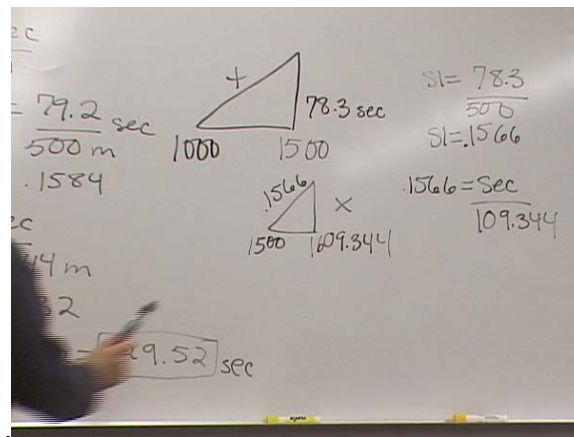 ec
= 79.2 sec
500 m
.1584
ec
44 m
32
= 29.52 sec
+
78.3 sec
1000 1500
.1566
x
1500 1609.344
Sl = 78.3
500
Sl = .1566
.1566 = Sec
109.344